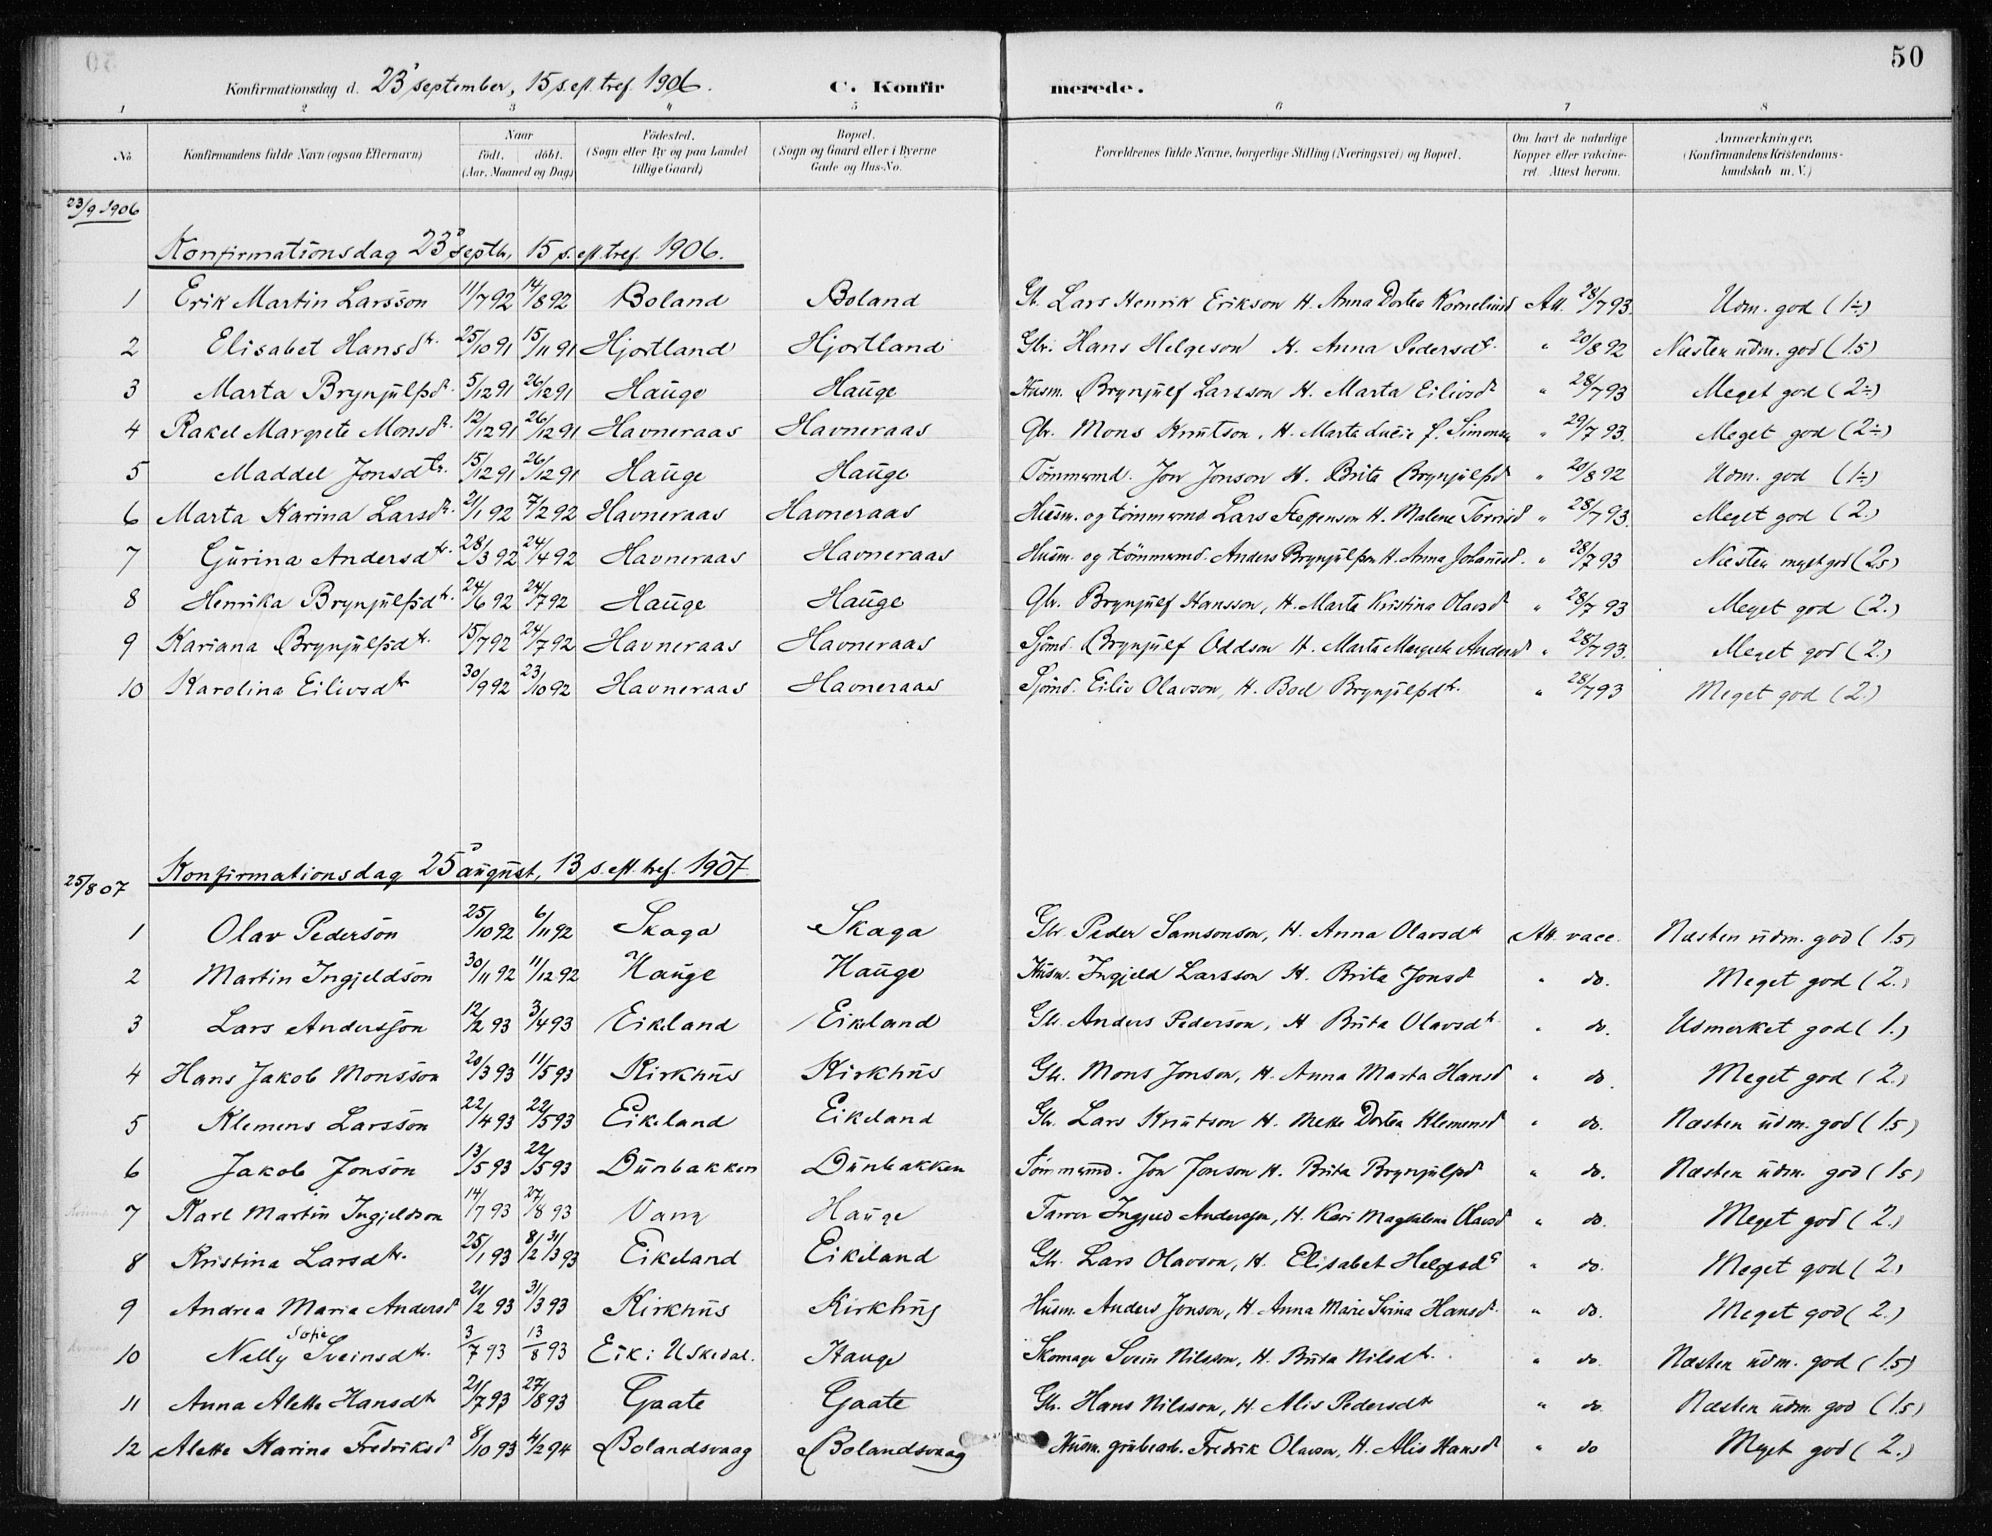 50
Konfirmationsdag d. 23' september, 15 s. eft. tref. 1906. C. Konfirmerede.
1 2 3 4 5 6 7 8
No. Konfirmandens fulde Navn (ogsaa Efternavn) Naar født. døbt. (Aar, Maaned og Dag) Fødested. (Sogn eller By og paa Landet tillige Gaard) Bopæl. (Sogn og Gaard eller i Byerne Gade og Hus-No. Forældrenes fulde Navne, borgerlige Stilling (Næringsvei) og Bopæl. Om havt de naturlige Kopper eller vakcineret. Attest herom. Anmærkninger. (Konfirmandens Kristendomskundskab m. V.)
23/9 1906
Konfirmationsdag 23' septb, 15 s. eft. tref. 1906.
1 Erik Martin Larsson 11/7 92 14/8 92 Boland Boland Gb. Lars Henrik Erikson H. Anna Dortea Korneliusd Att. 28/7 93. Udm. god (1÷)
2 Elisabet Hansdtr. 25/10 91 15/11 91 Hjortland Hjortland Gbr. Hans Helgeson H. Anna Pedersdtr. " 20/8 92 Næsten udm. god (1.5)
3 Marta Brynjulfsd. 5/12 91 26/12 91 Hauge Hauge Husm. Brynjulf Larsson H. Marta Eilivsdt " 28/7 93 Meget god (2÷)
4 Rakel Margrete Monsdt. 12/12 91 26/12 91 Havneraas Havneraas Gbr. Mons Knutson, H. Marta Lucie f. Simonsen " 29/7 93. Meget god (2÷)
5 Maddel Jonsdtr. 15/12 91 26/12 91 Hauge Hauge Tömmermd. Jon Jonson H. Brita Brynjulfsd " 20/8 92 Udm. god (1÷)
6 Marta Karina Larsdt. 21/1 92 7/2 92 Havneraas Havneraas Husm. og tömmermd Lars Steffenson H. Malene Torrisd " 28/7 93. Meget god (2.)
7 Gurina Andersdtr. 28/3 92 24/4 92 Havneraas Havneraas Husm. og tömmermd. Anders Brynjulfsen H. Anna Johannesd. " 28/7 93 Næsten meget god (2.5)
8 Henrika Brynjulfsdtr. 24/6 92 24/7 92 Hauge Hauge Gbr. Brynjulf Hansson, H. Marta Kristina Olavsdt " 28/7 93 Meget god (2.)
9 Kariana Brynjulfsdtr. 15/7 92 24/7 92 Havneraas Havneraas Sjömd. Brynjulf Oddson H. Marta Margrete Andersd " 28/7 93. Meget god (2.)
10 Karolina Eilivsdtr 30/9 92 23/10 92 Havneraas Havneraas Sjömd. Eiliv Olavson, H. Boel Brynjulfsdtr. " 28/7 93 Meget god (2.)
25/8 07 Konfirmationsdag 25' august, 13 s. eft. tref. 1907.
1 Olav Pederson 25/10 92 6/11 92 Skaga Skaga Gbr. Peder Samsonson, H. Anna Olavsdtr Att. vacc. Næsten udm. god (1.5)
2 Martin Ingjeldson 30/11 92 11/12 92 Hauge Hauge Husm. Ingjeld Larsson H. Brita Jonsdt " do. Meget god (2.)
3 Lars Andersson 12/2 93 3/4 93 Eikeland Eikeland Gbr. Anders Pederson, H. Brita Olavsdt. " do. Udmerket god (1.)
4 Hans Jakob Monsson 20/3 93 11/5 93 Kirkhus Kirkhus Gbr. Mons Jonson, H. Anna Marta Hansd " do. Meget god (2.)
5 Klemens Larsson 22/4 93 22/5 93 Eikeland Eikeland Gb. Lars Knutson H. Mette Dortea Klemensd " do. Næsten udm. god (1.5)
6 Jakob Jonson 13/5 93 22/5 93 Dunbakken Dunbakken Tömmermd. Jon Jonson H. Brita Brynjulfsd " do. Næsten udm. god (1.5)
7 Karl Martin Ingjeldson 14/7 93 27/8 93 Vang Hauge Farver Ingjeld Andersson, H. Kari Magdalena Olavsd " do. Meget god (2.)
8 Kristina Larsdtr. 25/1 93 8/2 31/3 93 Eikeland Eikeland Gbr. Lars Olavson, H. Elisabet Helgesdt " do. Meget god (2.)
9 Andrea Maria Andersd 21/2 93 31/3 93 Kirkhus Kirkhus Husm. Anders Jonson, H. Anna Marie Serina Hansdt. " do. Meget god (2.)
10 Nelly Sofie Sveinsdtr. 3/7 93 13/8 93 Eik i Uskedal. Hauge Skomager Svein Nilsson, H. Brita Nilsdtr. " do. Næsten udm. god (1.5)
11 Anna Alette Hansdtr 21/7 93 27/8 93 Gaate Gaate Gbr. Hans Nilsson, H. Alis Pedersdtr " do. Næsten udm. god (1.5)
12 Alette Karine Fredriksd 8/10 93 4/2 94 Bolandsvaag Bolandsvaag Husm. grubearb. Fredrik Olavson, H. Alis Hansdt " do Meget god (2.)